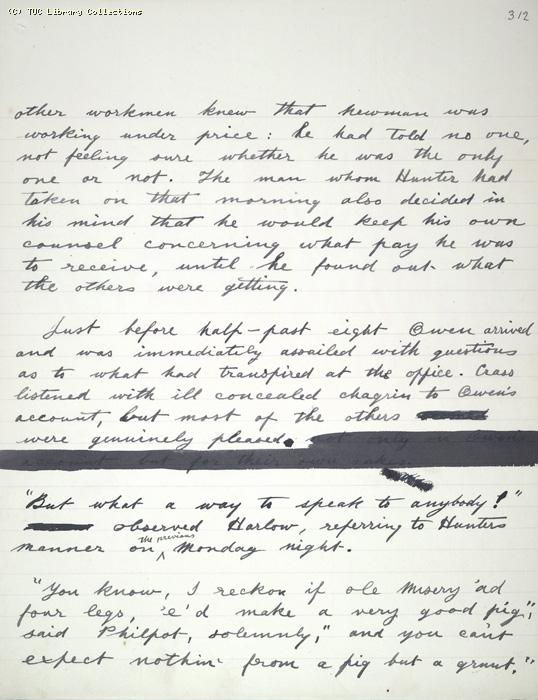 (C) TUC Library Collections
312
other workmen knew that Newman was
working under price: he had told no one,
not feeling sure whether he was the only
one or not. The man whom Hunter had
taken on that morning also decided in
his mind that he would keep his own
counsel concerning what pay he was
to receive, until he found out what
the others were getting.
Just before half-past eight Owen arrived
and was immediately assailed with questions
as to what had transpired at the office. Crass
listened with ill concealed chagrin to Owen's
account, but most of the others
were genuinely pleased. not only on Owen's
account but for their own sakes.
"But what a way to speak to anybody!"
observed Harlow, referring to Hunters
manner on the previous Monday night.
"You know, I reckon if ole Misery 'ad
four legs, 'e'd make a very good pig",
said Philpot, solemnly," and you can't
expect nothin' from a pig but a grunt."